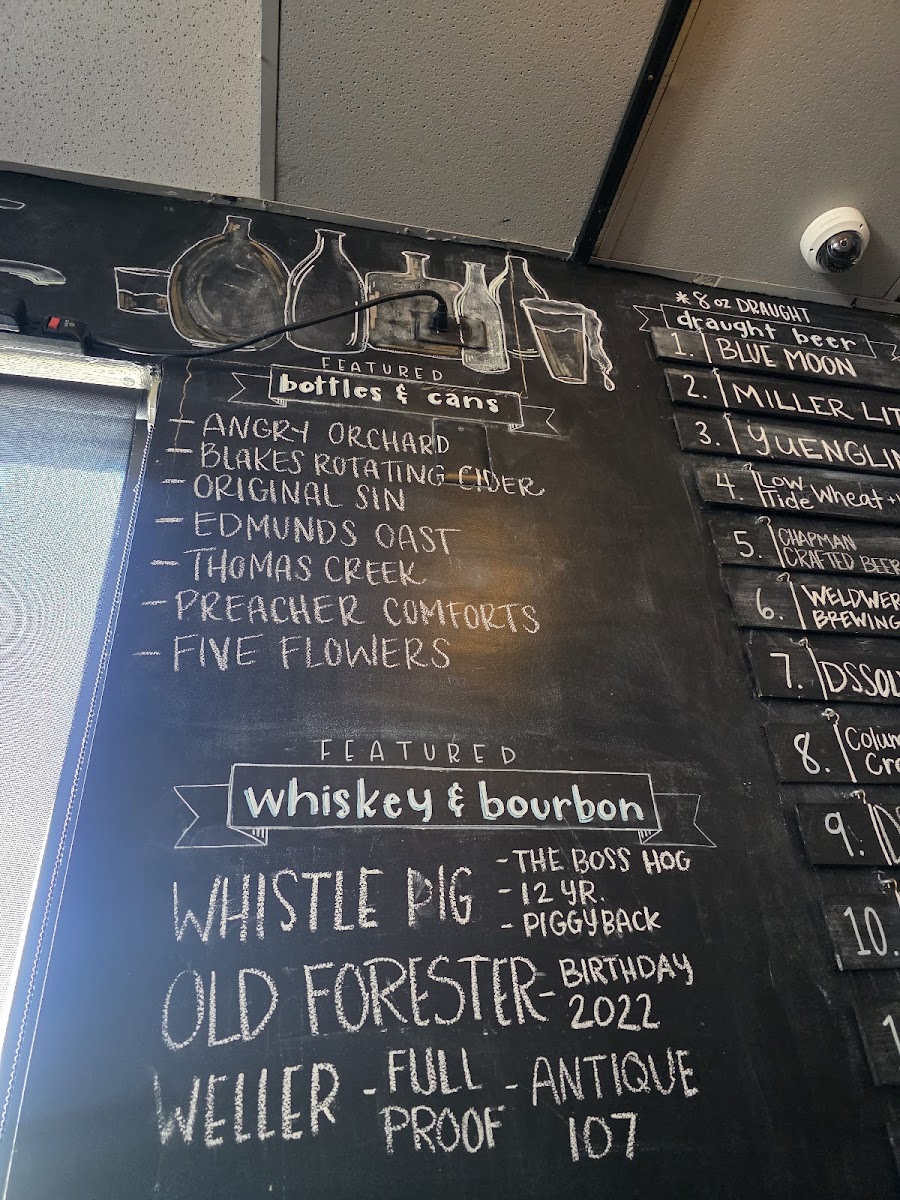 FEATURED
bottles & cans
- ANGRY ORCHARD
- BLAKES ROTATING CIDER
- ORIGINAL SIN
- EDMUNDS OAST
- THOMAS CREEK
- PREACHER COMFORTS
- FIVE FLOWERS
FEATURED
whiskey & bourbon
WHISTLE PIG
- THE BOSS HOG
- 12 YR.
- PIGGYBACK
OLD FORESTER-
BIRTHDAY
2022
WELLER
- FULL
PROOF
- ANTIQUE
107
*8 oz DRAUGHT
draught beer
1. BLUE MOON
2. MILLER LIT
3. YUENGLIN
4. Low
Tide Wheat
5. CHAPMAN
CRAFTED BEER
6. WELDWER
BREWING
7. DSSOL
8. Colum
Cre
9.
10.